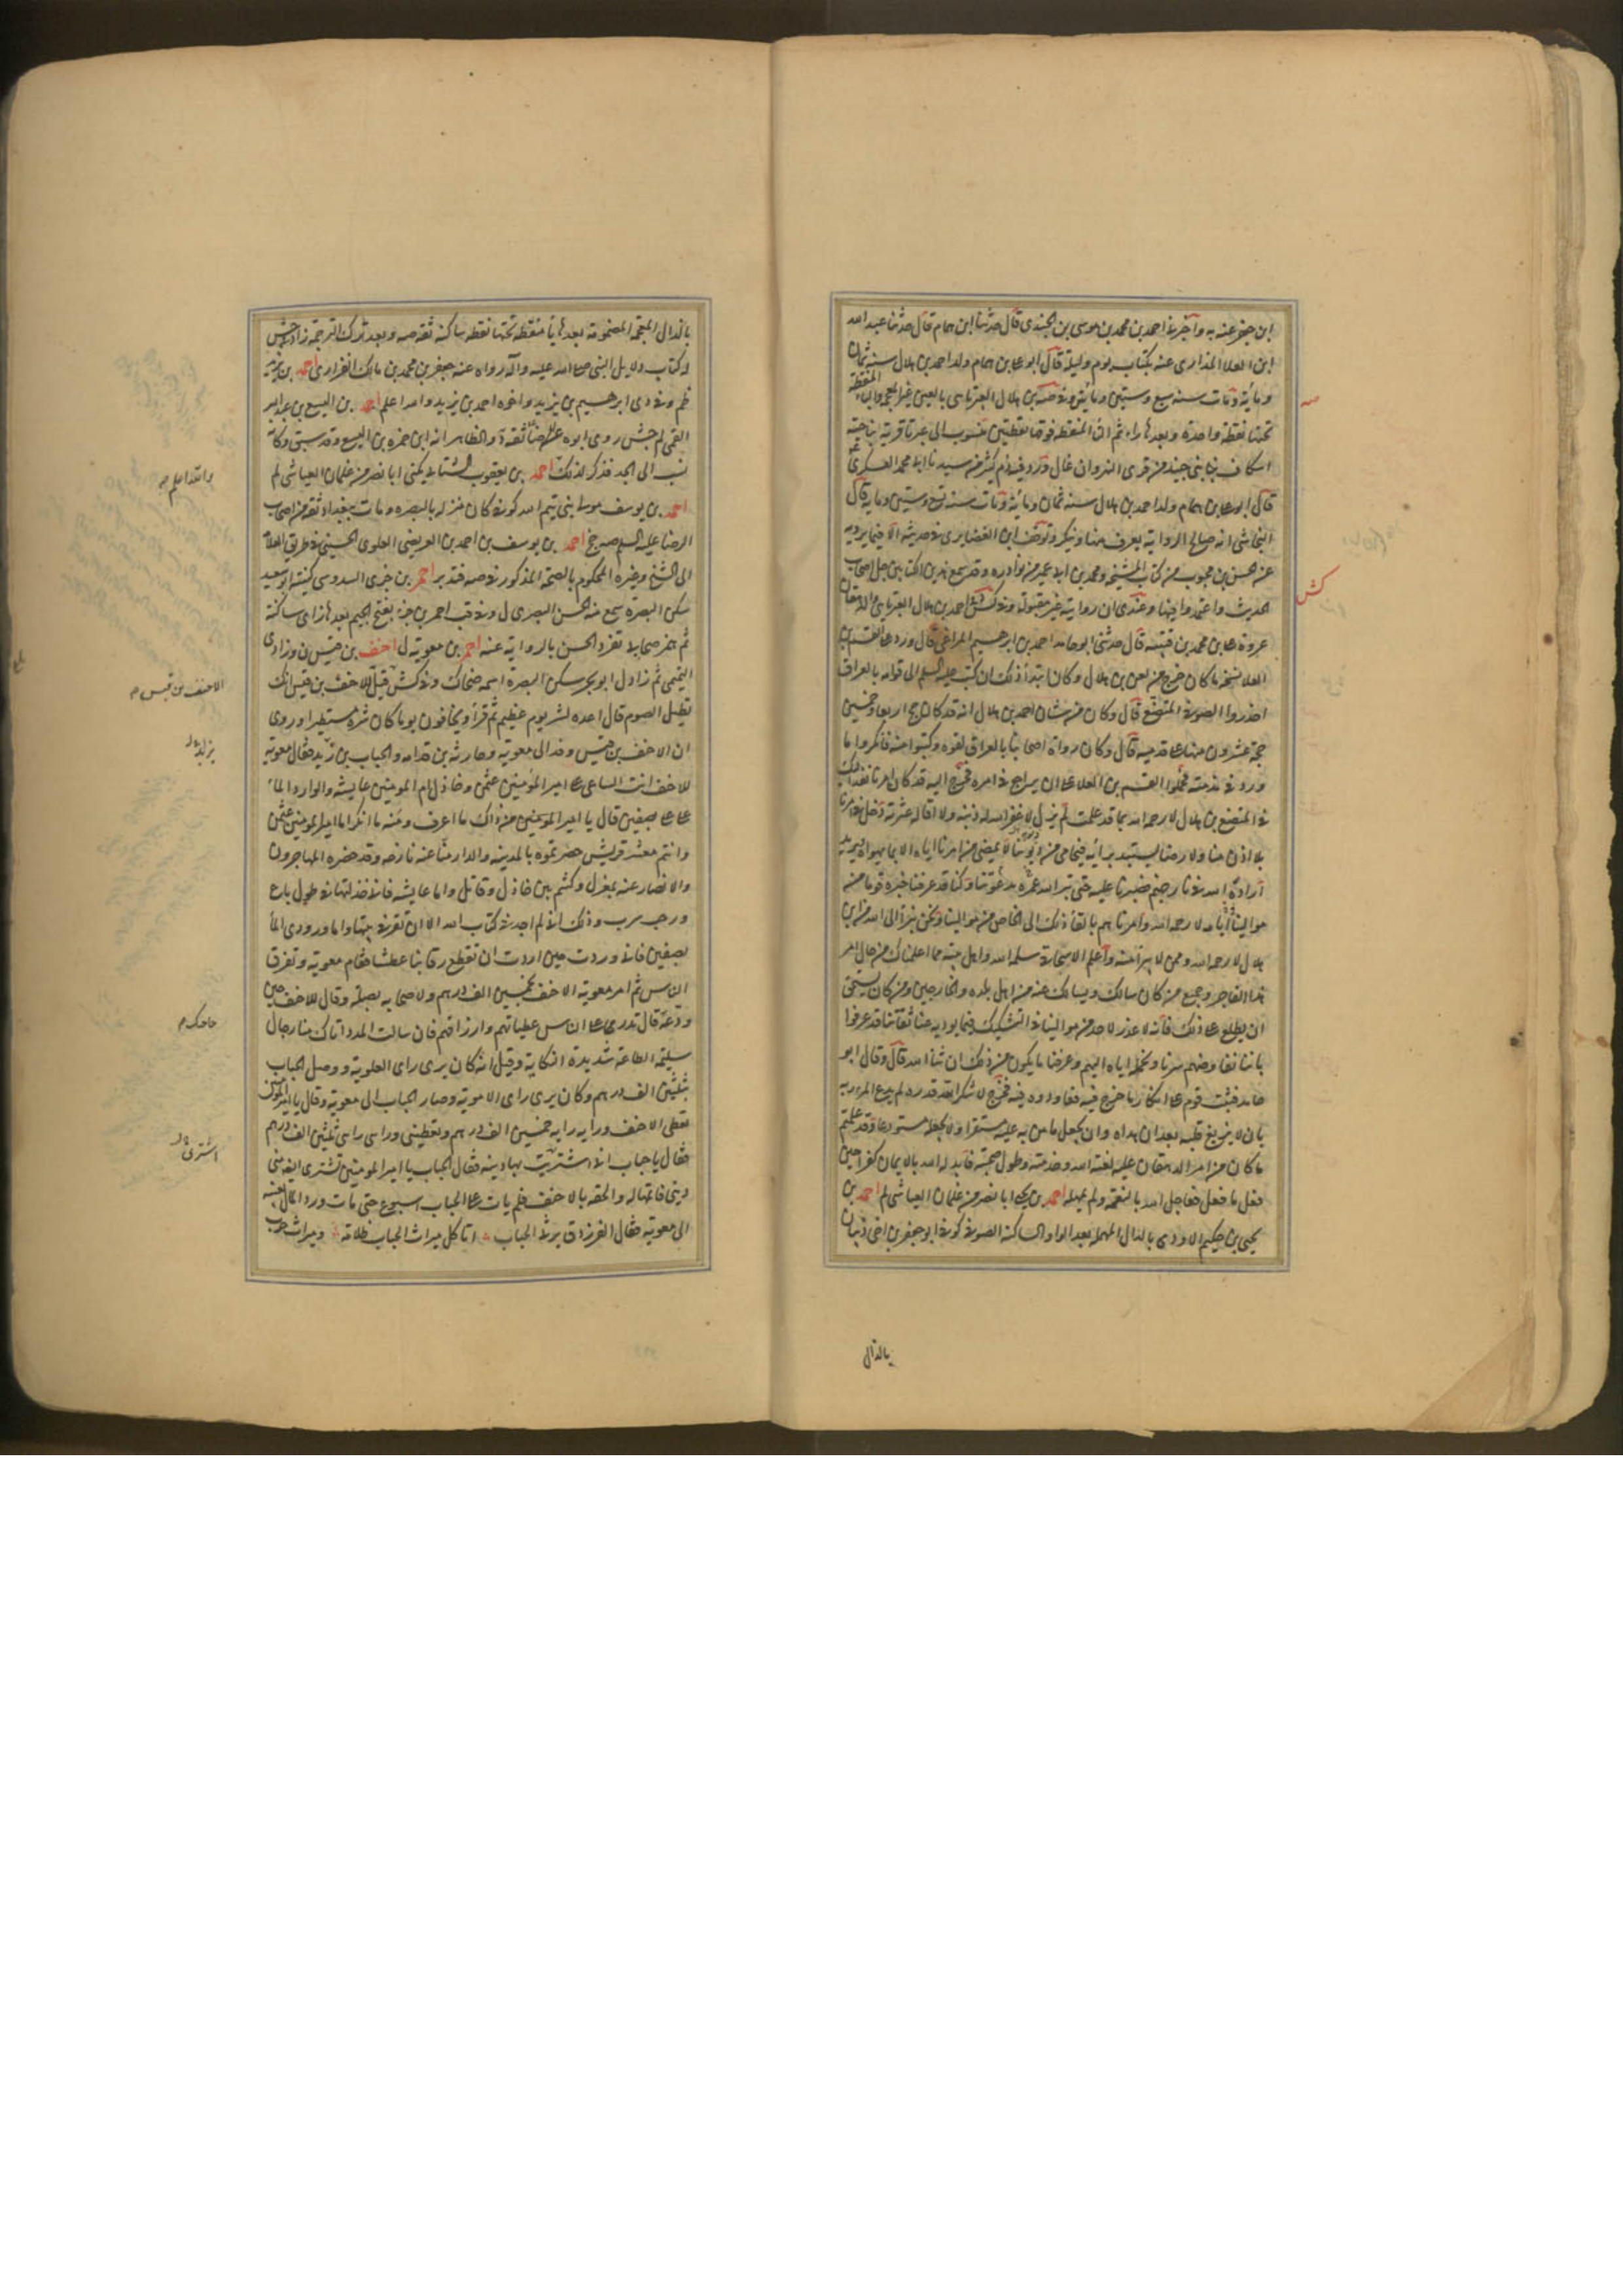 ابن جعفر عنه به واخبرنى احمد بن محمد بن موسى بن الجندى قال حدثنا ابن همام قال حدثنا عبد الله
ابن العلا المذارى عنه بكتاب يوم وليلة قال ابو على بن همام ولد احمد بن هلال سنة ثمانين
ومائة ومات سنة سبع وستين ومائتين وفى صه بن هلال العبرتائى بالعين غير المعجمة والباء المنقطة
تحتها نقطة واحدة وبعدها راء ثم التاء المنقطة فوقها نقطتين منسوب الى عبرتا قرية بناحية
اسكاف بنى جنيد من قرى النهروان غال ورد فيه ذم كثير من سيدنا ابى محمد العسكرى ع
قال ابو على بن همام ولد احمد بن هلال سنة ثمان ومائة ومات سنة تسع وستين وماية قال
النجاشى انه صالح الرواية يعرف منها وينكر وتوقف ابن الغضايرى فى حديثه الا فيما يرويه
عن الحسن بن محبوب من كتاب المشيخة ومحمد بن ابى عمير من نوادره وقد سمع هذين الكتابين جل اصحاب
الحديث واعتمدوا فيها وعندى ان روايته غير مقبولة وفى كش احمد بن هلال العبرتائى والدهقان
عروة على بن محمد بن قتيبة قال حدثنى ابو حامد احمد بن ابرهيم المراغى قال ورد على القسم بن
العلا نسخة ما كان خرج من لعن بن هلال وكان ابتدأ ذلك ان كتب عليه السلم الى قوامه بالعراق
احذروا الصوفى المتصنع قال وكان من شان احمد بن هلال انه قد كان حج اربعا وخمسين
حجة عشرون منها على قدميه قال وكان رواة اصحابنا بالعراق لقوه وكتبوا منه فانكروا ما
ورد فى مذمته فحملوا القسم بن العلا على ان يراجع فى امره فخرج اليه قد كان امرنا نفذ اليك
فى المتصنع بن هلال لا رحمه الله بما قد علمت لم يزل لا غفر الله له ذنبه ولا اقاله عثرته دخل فى امرنا
بلا اذن منا ولا رضا يستبد برأيه فيحامى من ديوننا لا يمضى من امرنا اياه الا بما يهواه ويريد
اراده الله فى نار جهنم فصبرنا عليه حتى بتر الله عمره بدعوتنا وكنا قد عرفنا خبره قوما من
موالينا فى ايامه لا رحمه الله وامرناهم بالقاء ذلك الى الخاص من موالينا ونحن نبرأ الى الله من ابن
هلال لا رحمه الله وممن لا يبرأ منه واعلم الاسحاقى سلمه الله واهل بيته مما اعلمناك من حال امر
هذا الفاجر وجميع من كان سالك ويسالك عنه من اهل بلده والخارجين ومن كان يستحق
ان يطلع على ذلك فانه لا عذر لاحد من موالينا فى التشكيك فيما يوديه عنا ثقاتنا قد عرفوا
باننا نفاوضهم سرنا ونحمله اياه اليهم وعرفنا ما يكون من ذلك ان شا الله قال وقال ابو
حامد فثبت قوم على انكار ما خرج فيه فعاودوه فيه فخرج لا شكر الله قدره لم يدع المرء ربه
بان لا يزيغ قلبه بعد ان هداه وان يجعل ما من به عليه مستقرا ولا يجعله مستودعا وقد علمتم
ما كان من امر الدهقان عليه لعنة الله وخدمته وطول صحبته فابدله الله بالايمان كفرا حين
فعل ما فعل فعاجله الله بالنقمة ولم يمهله احمد بن يحيى ابا نصر من غلمان العياشى لم احمد بن
يحيى بن حكيم الاودى بالدال المهملة بعد الواو الساكنة الصوفى كوفى ابو جعفر بن اخى ذبيان
صه
كش
بالذال
بالذال المعجمة المضمومة بعدها يا منقطة تحتها نقطة ساكنة ثقة صه وبعد ترك الترجمة زاد جش
له كتاب دلايل النبى صلى الله عليه وآله رواه عنه جعفر بن محمد بن مالك الفزارى احمد بن يزيد
ظم وفى دى ابرهيم بن يزيد واخوه احمد بن يزيد والله اعلم احمد بن اليسع بن عبد الله
القمى لم جش روى ابوه عن الرضا ثقة والظاهر انه ابن حمزه بن اليسع وقد سبق وكانه
نسب الى الجد فذكر لذلك احمد بن يعقوب السنائى يكنى ابا نصر من غلمان العياشى لم
احمد بن يوسف مولى بنى تيم الله كوفى كان منزله بالبصره ومات ببغداد ثقة من اصحاب
الرضا عليه السلم صه جخ احمد بن يوسف بن احمد بن العريضى العلوى الحسينى فى طريق العلامة
الى الشيخ وغيره المحكوم بالصحة المذكور فى صه فتدبر احمر بن جزى السدوسى كنيته ابو سعيد
سكن البصرة سمع منه الحسن البصرى ل وفى قب احمر بن جزء بفتح الجيم بعدها زاى ساكنة
ثم همزه صحابى تفرد الحسن بالرواية عنه احمر بن معوية ل احنف بن قيس ن وزاد ى
التيمى ثم زاد ل ابو بحر سكن البصرة اسمه ضحاك وفى كش قيل للاحنف بن قيس انك
تطيل الصوم قال اعده لشر يوم عظيم ثم قرأ ويخافون يوما كان شره مستطيرا وروى
ان الاحنف بن قيس وفد الى معوية وحارثة بن قدامه والحباب بن زيد فقال معوية
للاحنف انت الساعى على امير المؤمنين عثمن وخاذل ام المومنين عايشه والوارد الماء
على على بصفين قال يا امير المومنين من ذاك ما اعرف ومنه ما انكر اما امير المومنين عثمن
وانتم معشر قريش حضرتموه بالمدينه والدار منا عنه نازحه وقد حضره المهاجرون
والانصار عنه بمعزل وكنتم بين خاذل وقاتل واما عايشه فانى خذلتها فى طول باع
ورحب سرب وذلك انى لم اجد فى كتاب الله الا ان تقر فى بيتها واما ورودى الماء
بصفين فانى وردت حين اردت ان تقطع رقابنا عطشا فقام معوية وتفرق
الناس ثم امر معوية الاحنف بخمسين الف درهم ولاصحابه بصلة وقال للاحنف حين
ودعه قال تدر على الناس عطياتهم وارزاقهم فان سالت المدد اتاك منا رجال
سليمة الطاعة شديدة النكاية وقيل انه كان يرى راى العلوية ووصل الحباب
بثلثين الف درهم وكان يرى راى الاموية وصار الحباب الى معوية وقال يا امير المومنين
تعطى الاحنف ورايه رايه خمسين الف درهم وتعطينى وراى راى ثلثين الف درهم
فقال يا حباب انى اشتريت بها دينه فقال الحباب يا امير المومنين تشترى ايضا منى
دينى فاتمها له والحقه بالاحنف فلم يات على الحباب اسبوع حتى مات ورد المال بعينه
الى معوية فقال الفرزدق يرثى الحباب اتاكل ميراث الحباب ظلامة وميراث حرب
والله اعلم م
الاحنف بن قيس م
يزيد
حاجتك م
اشترى